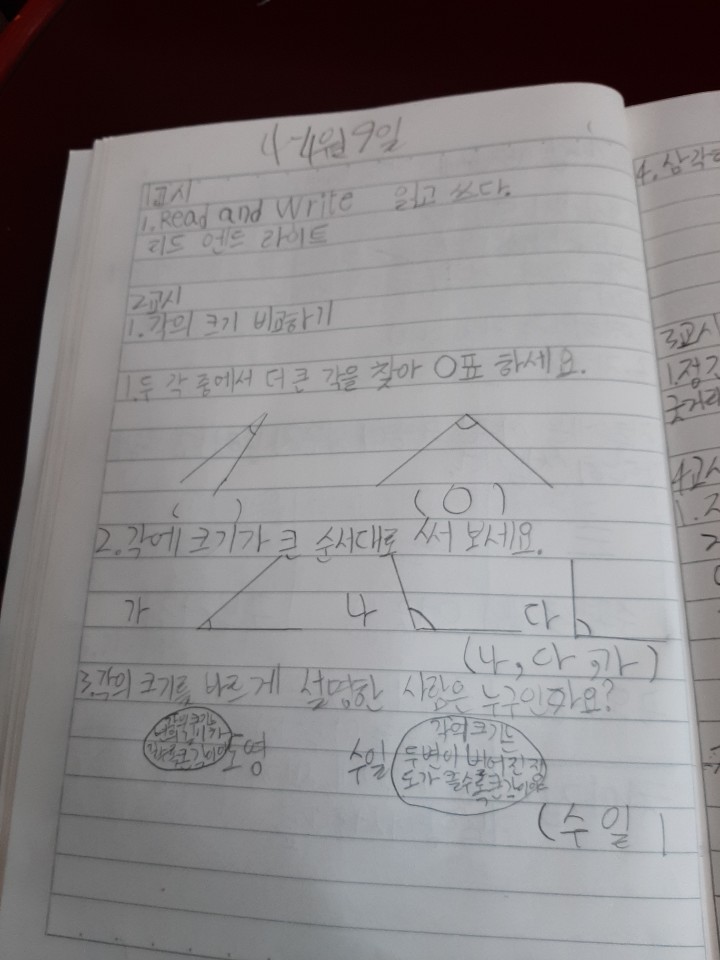 4-4월9일
1교시
1. Read and Write 읽고 쓰다.
리드 엔드 라이트
2교시
1. 각의 크기 비교하기
1. 두 각 중에서 더 큰 각을 찾아 O표 하세요.
( ) ( O )
2. 각에 크기가 큰 순서대로 써 보세요.
가 나 다
(나, 다, 가)
3. 각의 크기를 바르게 설명한 사람은 누구인가요?
각의 크기는
변의 길이가
큰 각이야
도영
수일
각의 크기는
두 변이 벌어진 정
도가 클수록 큰 각이야
(수일)
4. 삼각
3교시
1. 정
4교시
1.